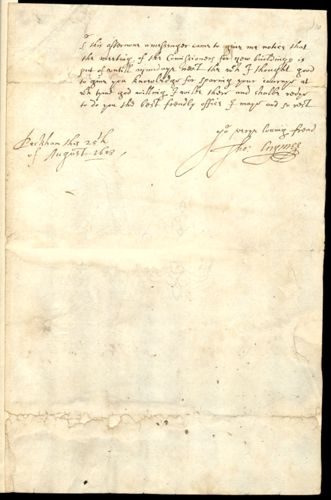 this afternoon a messenger came to give me notice that
the meeting of the Comissioners for new buildings is
put of untill I thought good
to give you knowledge for sparing your iourney
god willing, I wilbe there and shalbe redy
to do you the best frendly office I may and so rest
yor very loving frend
Tho:
Peckham this 25th
of August